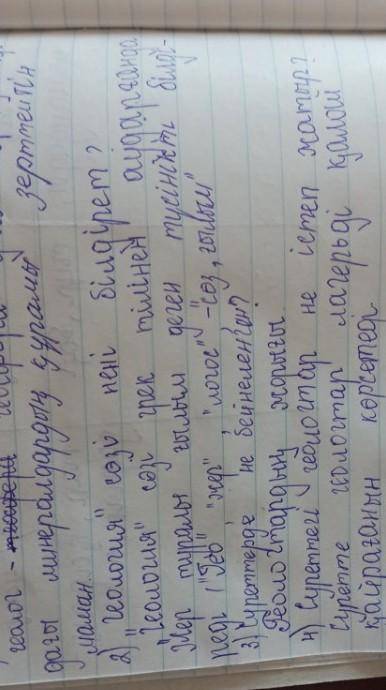 геолог -
дағы минералдардың құрамы зерттейтін
маман.
2) "Геология" сөзі нені білдірет?
"Геология" сөзі грек тілінен аударғанда
Жер туралы ғылым деген түсінікті білді-
реді ("Гео" "жер", "логос" - "сөз, ғылым"
3) Суреттерде не бейнеленген?
Геологтардың жарығы.
4) Суреттегі геологтар не істеп жатыр?
Суретте геологтар лагерьді қалай
қайрағанын көрсетеді.